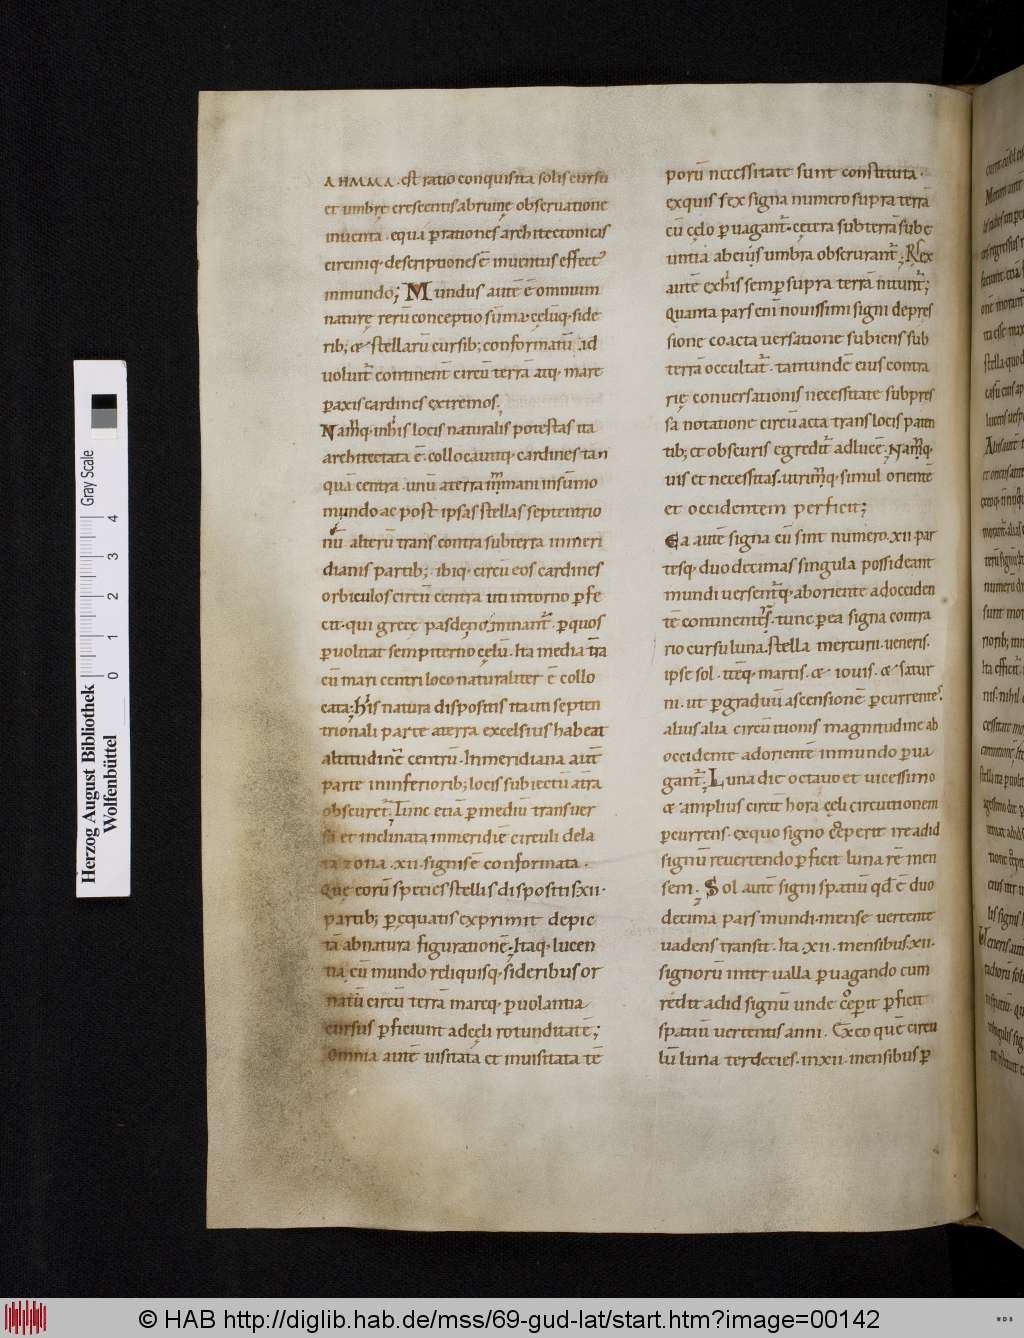 ΛΗΜΜΑ. est ratio conquisita solis cursu
et umbrę crescentis abrumę obseruatione
inuenta. equa ꝑrationes architectonicas
circiniq· descriptiones ē inuentus effectꝰ
inmundo; Mundus autē ē omnium
naturę rerū conceptio sūma· cęlūq· side
rib; & stellarū cursib; conformatū. id
uoluit᷑ continent̄ circū terrā atq· mare
ꝑ axis cardines extremos.
Namq· inhis locis naturalis potestas ita
architectata ē. collocauitq· cardines tan
quā centra. unū aterra immani insūmo
mundo ac post ipsas stellas septentrio
nū. alterū trans contra subterra inmeri
dianis partib; ibiq· circū eos cardines
orbiculos circū centra uti intorno ꝑfe
cit· qui grece pasde nominant᷑. ꝑquos
ꝑuolitat sempiterno cęlū. Ita media tra
cū mari centri loco naturaliter ē collo
cata; his natura dispositis ita uti septen
trionali parte aterra excelsius habeat
altitudine centrū. Inmeridiana autē
parte ininferiorib; locis subiectū at̄ra
obscuret᷑. Tunc etiā ꝑmediū transuer
sa et inclinata inmeridiē circuli dela
ta zona .xii. signis ē conformata.
Quę eorū species stellis dispositis .xii.
partib; ꝑęquatis exprimit depic
tā abnatura figurationē. Itaq· lucen
tia cū mundo reliquisq· sideribus or
natū circū terrā mareq· ꝑuolantia
cursus ꝑficiunt adcęli rotunditatē;
Omnia autē uisitata et inuisitata tē
porū necessitate sunt constituta.
exquis sex signa numero supra terrā
cū cęlo ꝑuagant᷑. cętera subterrā sube
untia ab eius umbra obscurant᷑; Sex
autē exhis semꝑ supra terrā nitunt᷑;
Quanta pars eni nouissimi signi depres
sione coacta uersatione subiens sub
terrā occultat᷑. tantundē eius contra
rię conuersationis necessitate subpres
sa notatione circū acta trans locis paten
tib; et obscuris egredit᷑ adlucē. Namq·
uis et necessitas. utrimq· simul orientē
et occidentem perficit;
Ea autē signa cū sint numero .xii. par
tesq· duo decimas singula possideant
mundi uersent᷑q· aboriente adocciden
tē continent᷑. tunc ꝑea signa contra
rio cursu luna. stella mercurii. ueneris.
ipse sol. itēq· martis. & iouis. & satur
ni. ut ꝑgraduū ascensionē ꝑcurrentes
alius alia circū itionis magnitudine ab
occidente adorientē inmundo ꝑua
gant᷑. Luna die octauo et uicessimo
& amplius circit̄ hora cęli circuitionem
ꝑcurrens. exquo signo cęꝑerit ire adid
signū reuertendo ꝑficit lunarē men
sem. Sol autē signi spatiū qd̄ ē duo
decima pars mundi. mense uertente
uadens transit. Ita .xii. mensibus .xii.
signorū inter ualla ꝑuagando cum
redit adid signū unde cęꝑit ꝑficit
spatiū uertentis anni. Ex eo quē circu
lū luna terdecies. inxii. mensibus ꝑ
Herzog August Bibliothek
Wolfenbüttel
0 1 2 3 4
Gray Scale
© HAB http://diglib.hab.de/mss/69-gud-lat/start.htm?image=00142
WDB